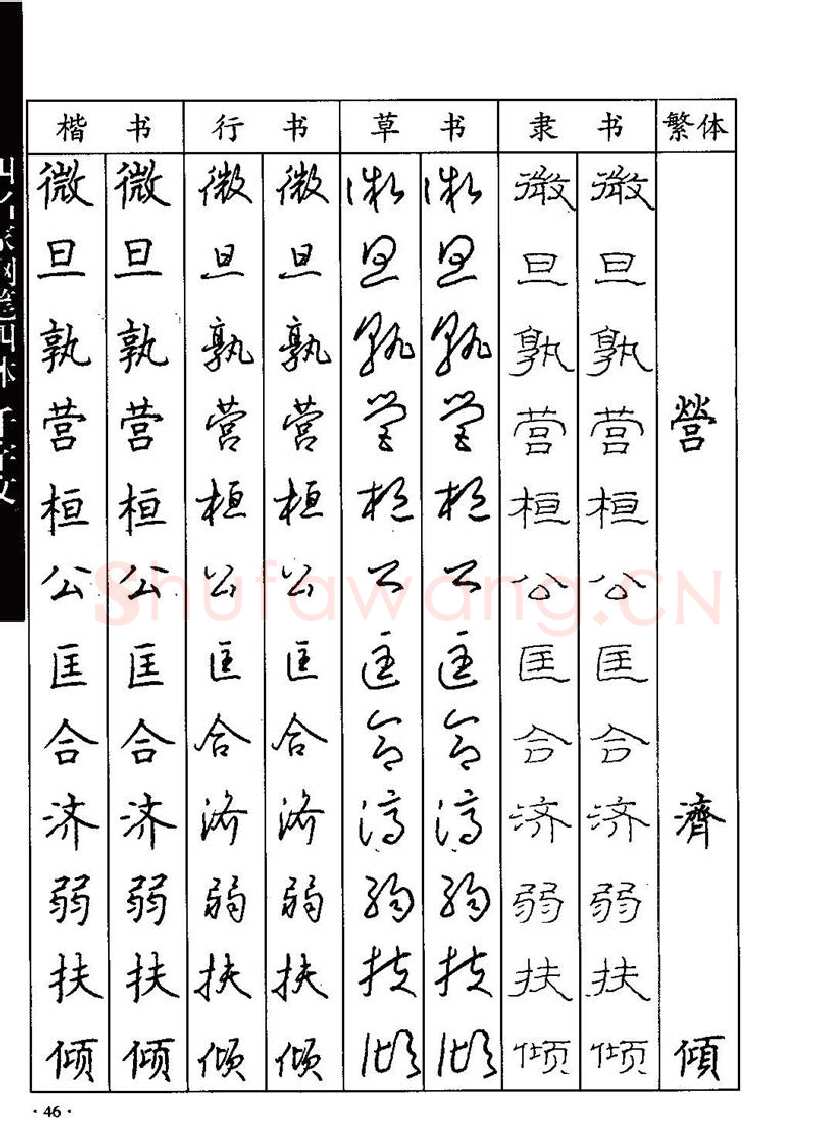 楷书 行书 草书 隶书 繁体
微 微 微 微 微 微 微 微
旦 旦 旦 旦 旦 旦 旦 旦
孰 孰 孰 孰 孰 孰 孰 孰
营 营 营 营 营 营 营 营 營
桓 桓 桓 桓 桓 桓 桓 桓
公 公 公 公 公 公 公 公
匡 匡 匡 匡 匡 匡 匡 匡
合 合 合 合 合 合 合 合
济 济 济 济 济 济 济 济 濟
弱 弱 弱 弱 弱 弱 弱 弱
扶 扶 扶 扶 扶 扶 扶 扶
倾 倾 倾 倾 倾 倾 倾 倾 傾
四名家钢笔四体 千字文
Shufawang.CN
·46·